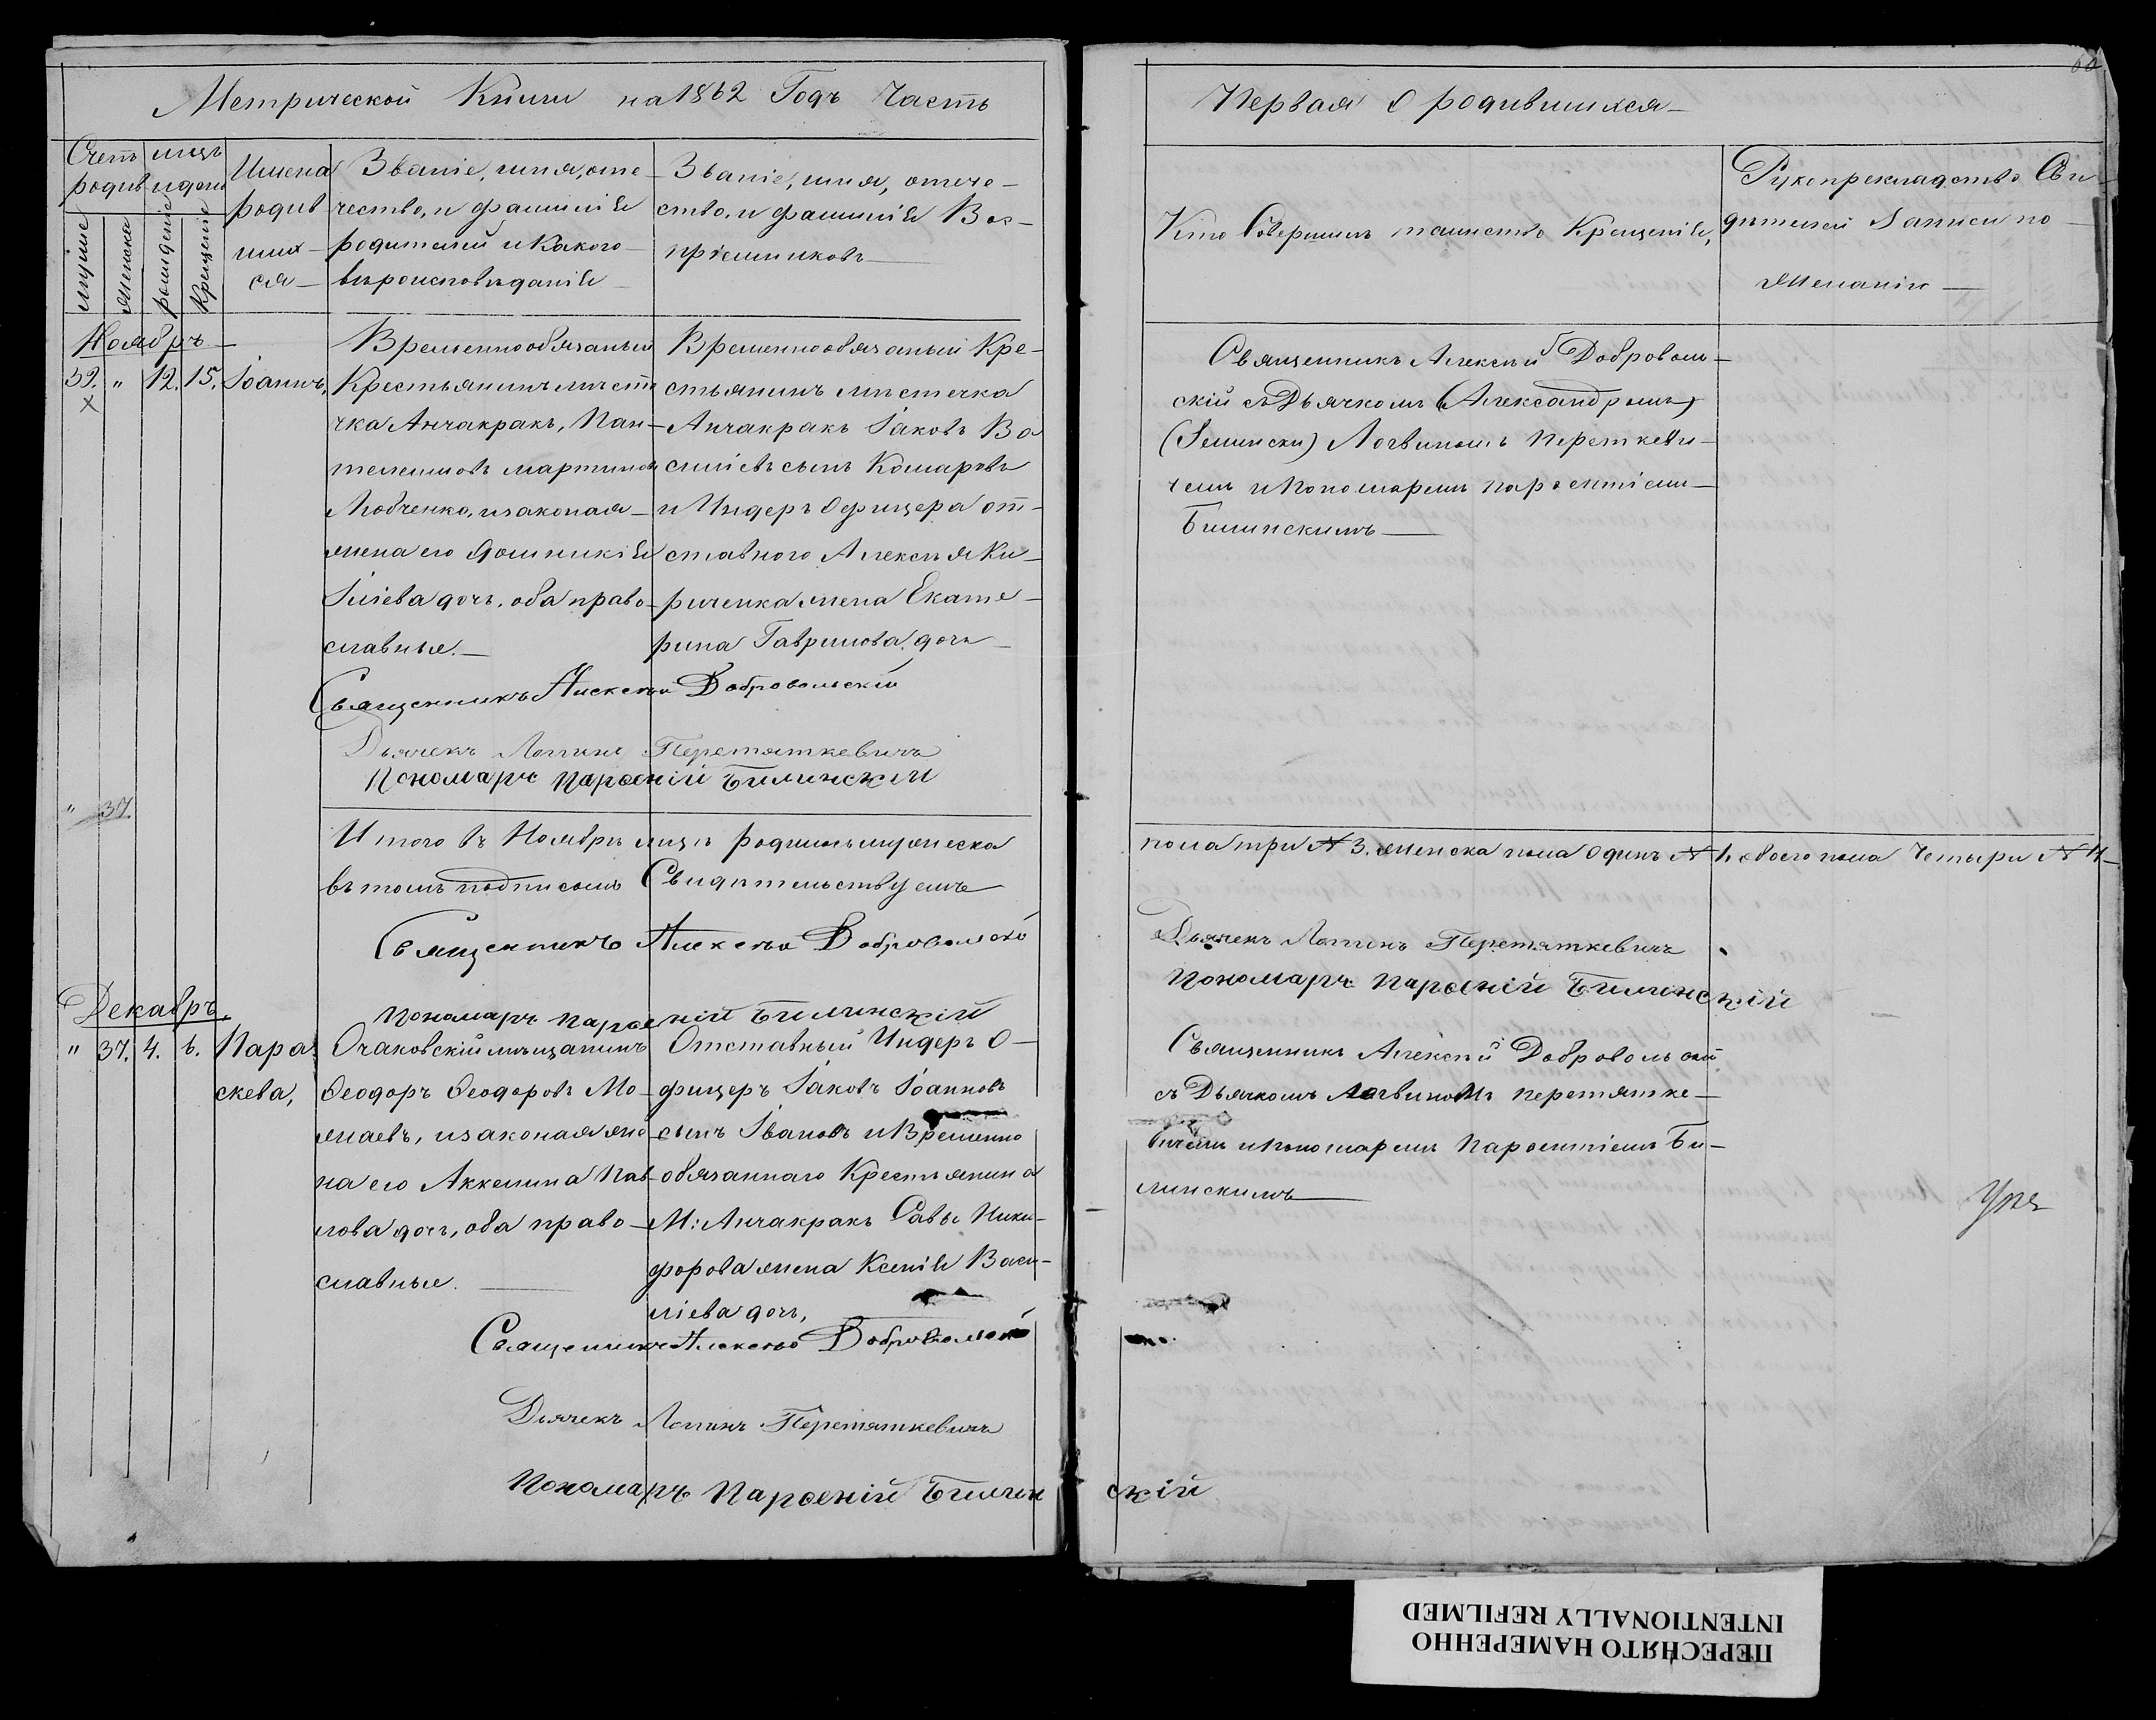 Метрической Книги на 1862 Годъ Часть
Счетъ родив
лицъ и дени
мужие
женска
рождение
Крещение
Имена
родив
ших-
ся-
Званіе, имя, оте-
чество, и фамилія
родителей и Какого-
вѣроисповѣданія
Званіе, имя, отече-
ство, и фамилія Вос-
пріемниковъ
Ноябръ-
39. " 12. 15. Іоаннъ,
Х
Временнообязаный
Крестьянинъ мѣсте
чка Анчакракъ, Пан-
телеимовъ мартиновъ
Любченко, изаконая-
жена его Домникія
Іліева дочь, оба право-
славные.-
Временнообязаный Кре-
стьянинъ мѣстечка
Анчакракъ Іаковъ Ва
силіевъ сынъ Комаровъ
и Ундеръ Офицера от-
ставного Алексѣя Ки-
риченка жена Екате-
рина Гаврилова дочь-
Священникъ Алексѣй Добровольскій
Дьячекъ Логинъ Перетяткевичъ
Пономарь Парѳеній Билинскій
" 37.
Итого въ Ноябрѣ лицъ родилось мужеска
въ томъ подписомъ Свидѣтельствуемъ
Священникъ Алексѣй Добровольскій
Пономарь Парѳеній Билинскій
Декабръ.
" 37. 4. 6. Пара
скева,
Очаковскій мѣщанинъ
Ѳеодоръ Ѳеодоровъ Мо-
жаевъ, изаконая же-
на его Аккелина Пав-
лова дочь, оба право-
славные.
Отставный Ундеръ О-
фицеръ Іаковъ Іоанновъ
сынъ Івановъ и Временно
обязаннаго Крестьянина
М: Анчакракъ Савы Ники-
форова жена Ксенія Васи-
ліева дочь,
Священникъ Алексѣй Добровольскій
Дьячекъ Логинъ Перетяткевичъ
Пономарь Парѳеній Билинскій
60
Первая О родившихся-
Кто Совершилъ таинство Крещенія,
Рукоприкладство Сви-
дѣтелей Записи по-
желанію-
Священникъ Алексѣй Доброволь-
скій съ Дьячкомъ (Александромъ)
Логвиномъ Переткеви-
чемъ и Пономаремъ Парѳентіемъ-
Билинскимъ-
пола три № 3. женска пола Одинъ № 1. обоего пола Четыри № 4-
Дьячекъ Логинъ Перетяткевичъ
Пономарь Парѳеній Билинскій
Священникъ Алексѣй Добровольскій
съ Дьячкомъ Логвиномъ Перетятке-
вичемъ и Пономаремъ Парѳентіемъ Би-
линскимъ-
ПЕРЕСНЯТО НАМЕРЕННО
INTENTIONALLY REFILMED